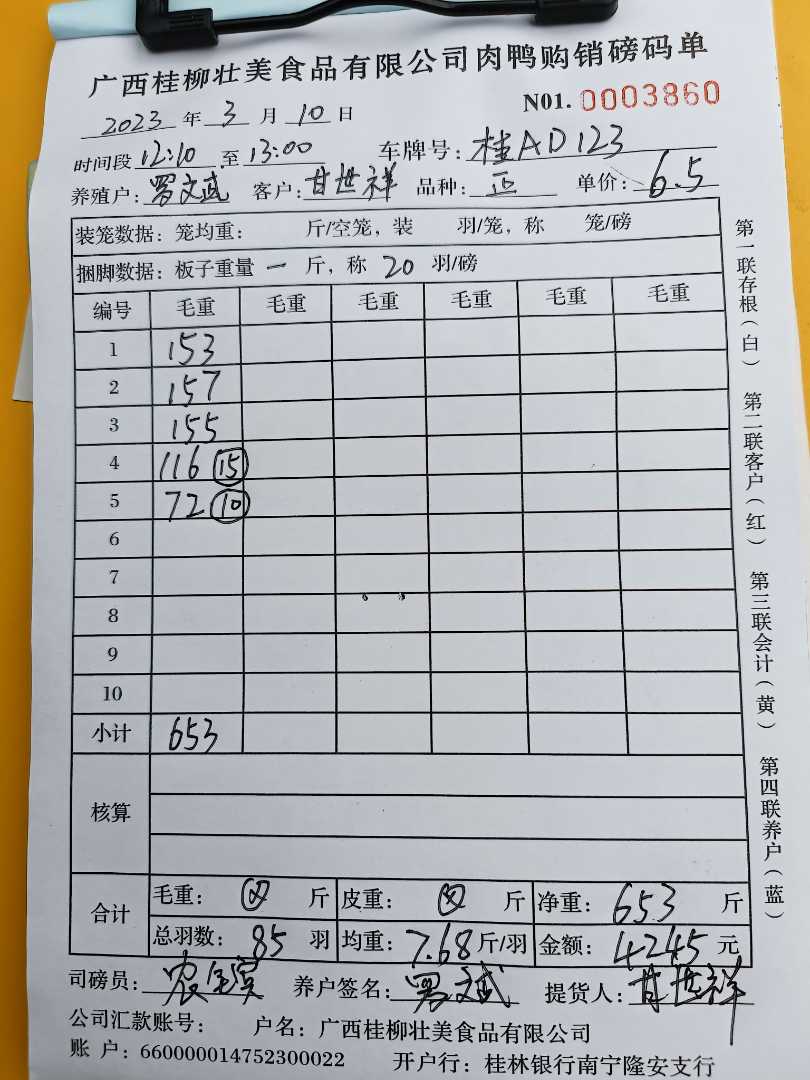 广西桂柳壮美食品有限公司肉鸭购销磅码单
2023 年 3 月 10 日 N01. 0003860
时间段 12:10 至 13:00 车牌号: 桂AD123
养殖户: 罗文斌 客户: 甘世祥 品种: 正 单价: 6.5
装笼数据: 笼均重: 斤/空笼, 装 羽/笼, 称 笼/磅
捆脚数据: 板子重量 一 斤, 称 20 羽/磅
编号 毛重 毛重 毛重 毛重 毛重 毛重
1 153
2 157
3 155
4 116 15
5 72 10
6
7
8
9
10
小计 653
核算
合计 毛重: 斤 皮重: 斤 净重: 653 斤
总羽数: 85 羽 均重: 7.68 斤/羽 金额: 4245 元
司磅员: 养户签名: 罗文斌 提货人: 甘世祥
公司汇款账号: 户名: 广西桂柳壮美食品有限公司
账 户: 660000014752300022 开户行: 桂林银行南宁隆安支行
第一联存根(白)
第二联客户(红)
第三联会计(黄)
第四联养户(蓝)